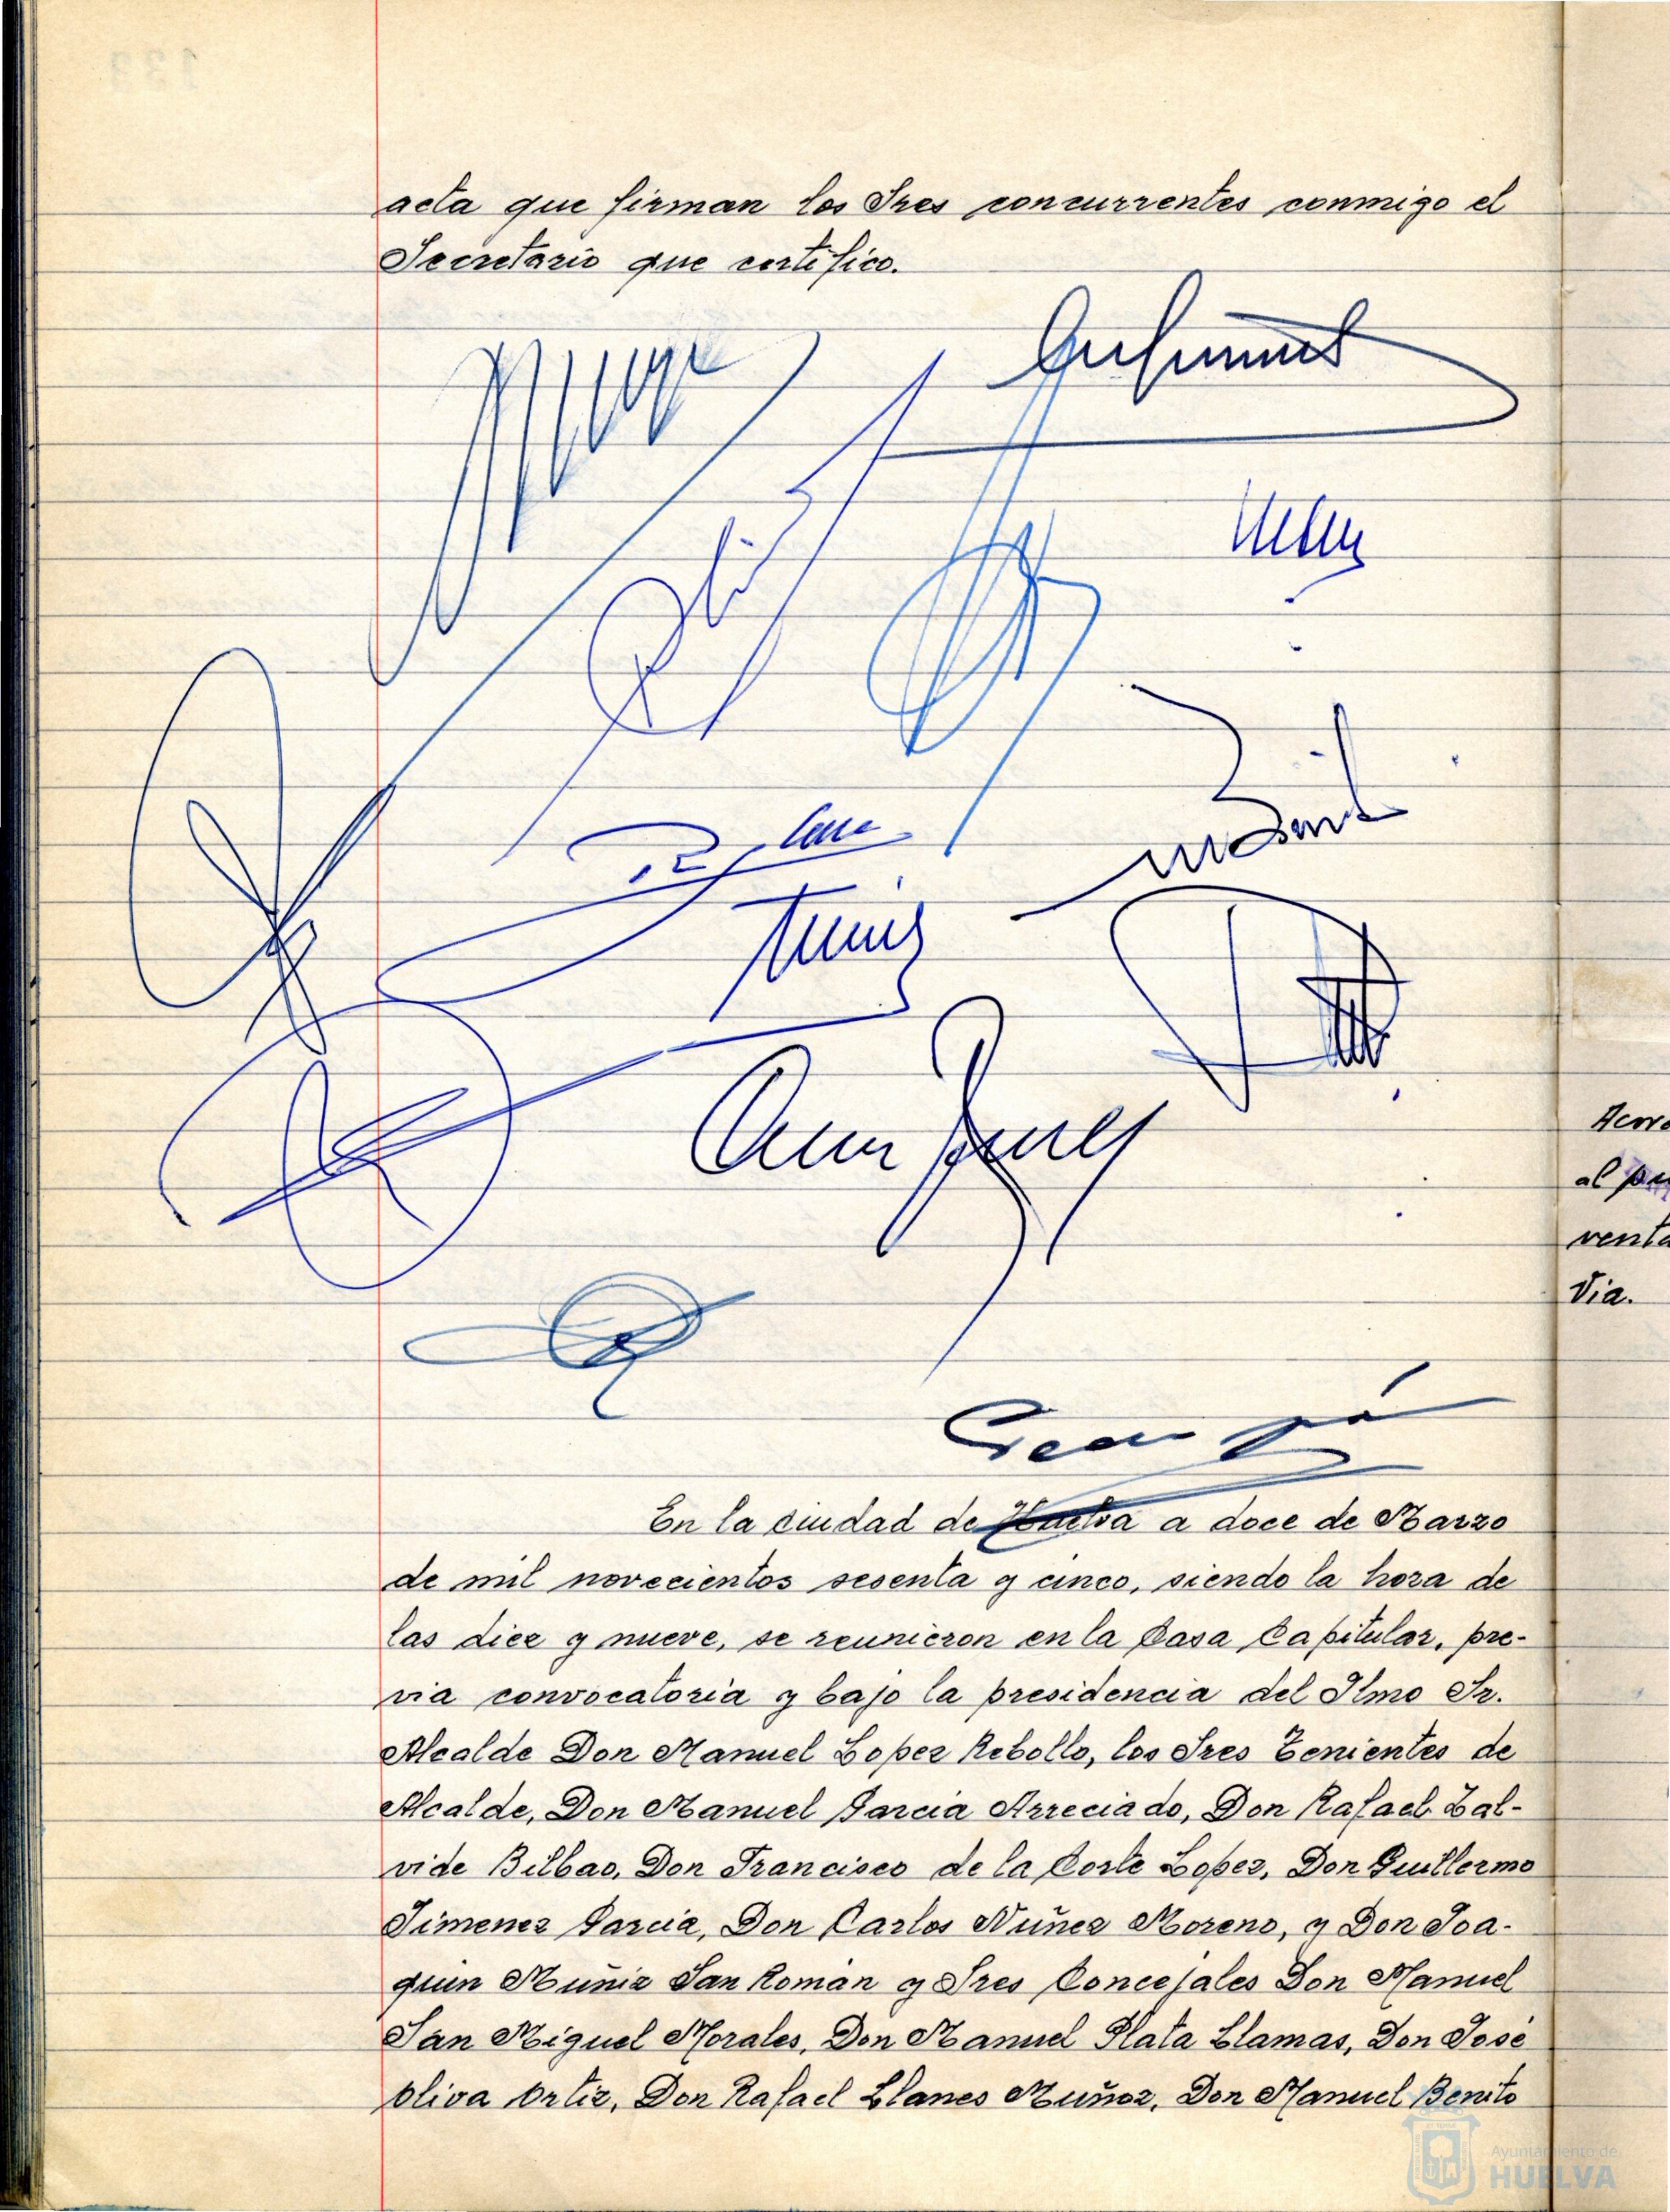 acta que firman los Sres concurrentes conmigo el
Secretario que certifico.
En la ciudad de Huelva a doce de Marzo
de mil novecientos sesenta y cinco, siendo la hora de
las diez y nueve, se reunieron en la Casa Capitular, pre-
via convocatoria y bajo la presidencia del Ilmo Sr.
Alcalde Don Manuel Lopez Rebollo, los Sres Tenientes de
Alcalde, Don Manuel Garcia Arreciado, Don Rafael Zal-
vide Bilbao, Don Francisco de la Corte Lopez, Don Guillermo
Jimenez Garcia, Don Carlos Nuñez Moreno, y Don Joa-
quin Muñiz San Roman y Sres Concejales Don Manuel
San Miguel Morales, Don Manuel Plata Llamas, Don José
Oliva Ortiz, Don Rafael Llanes Muñoz, Don Manuel Benito
al
Via.
Ayuntamiento de
HUELVA